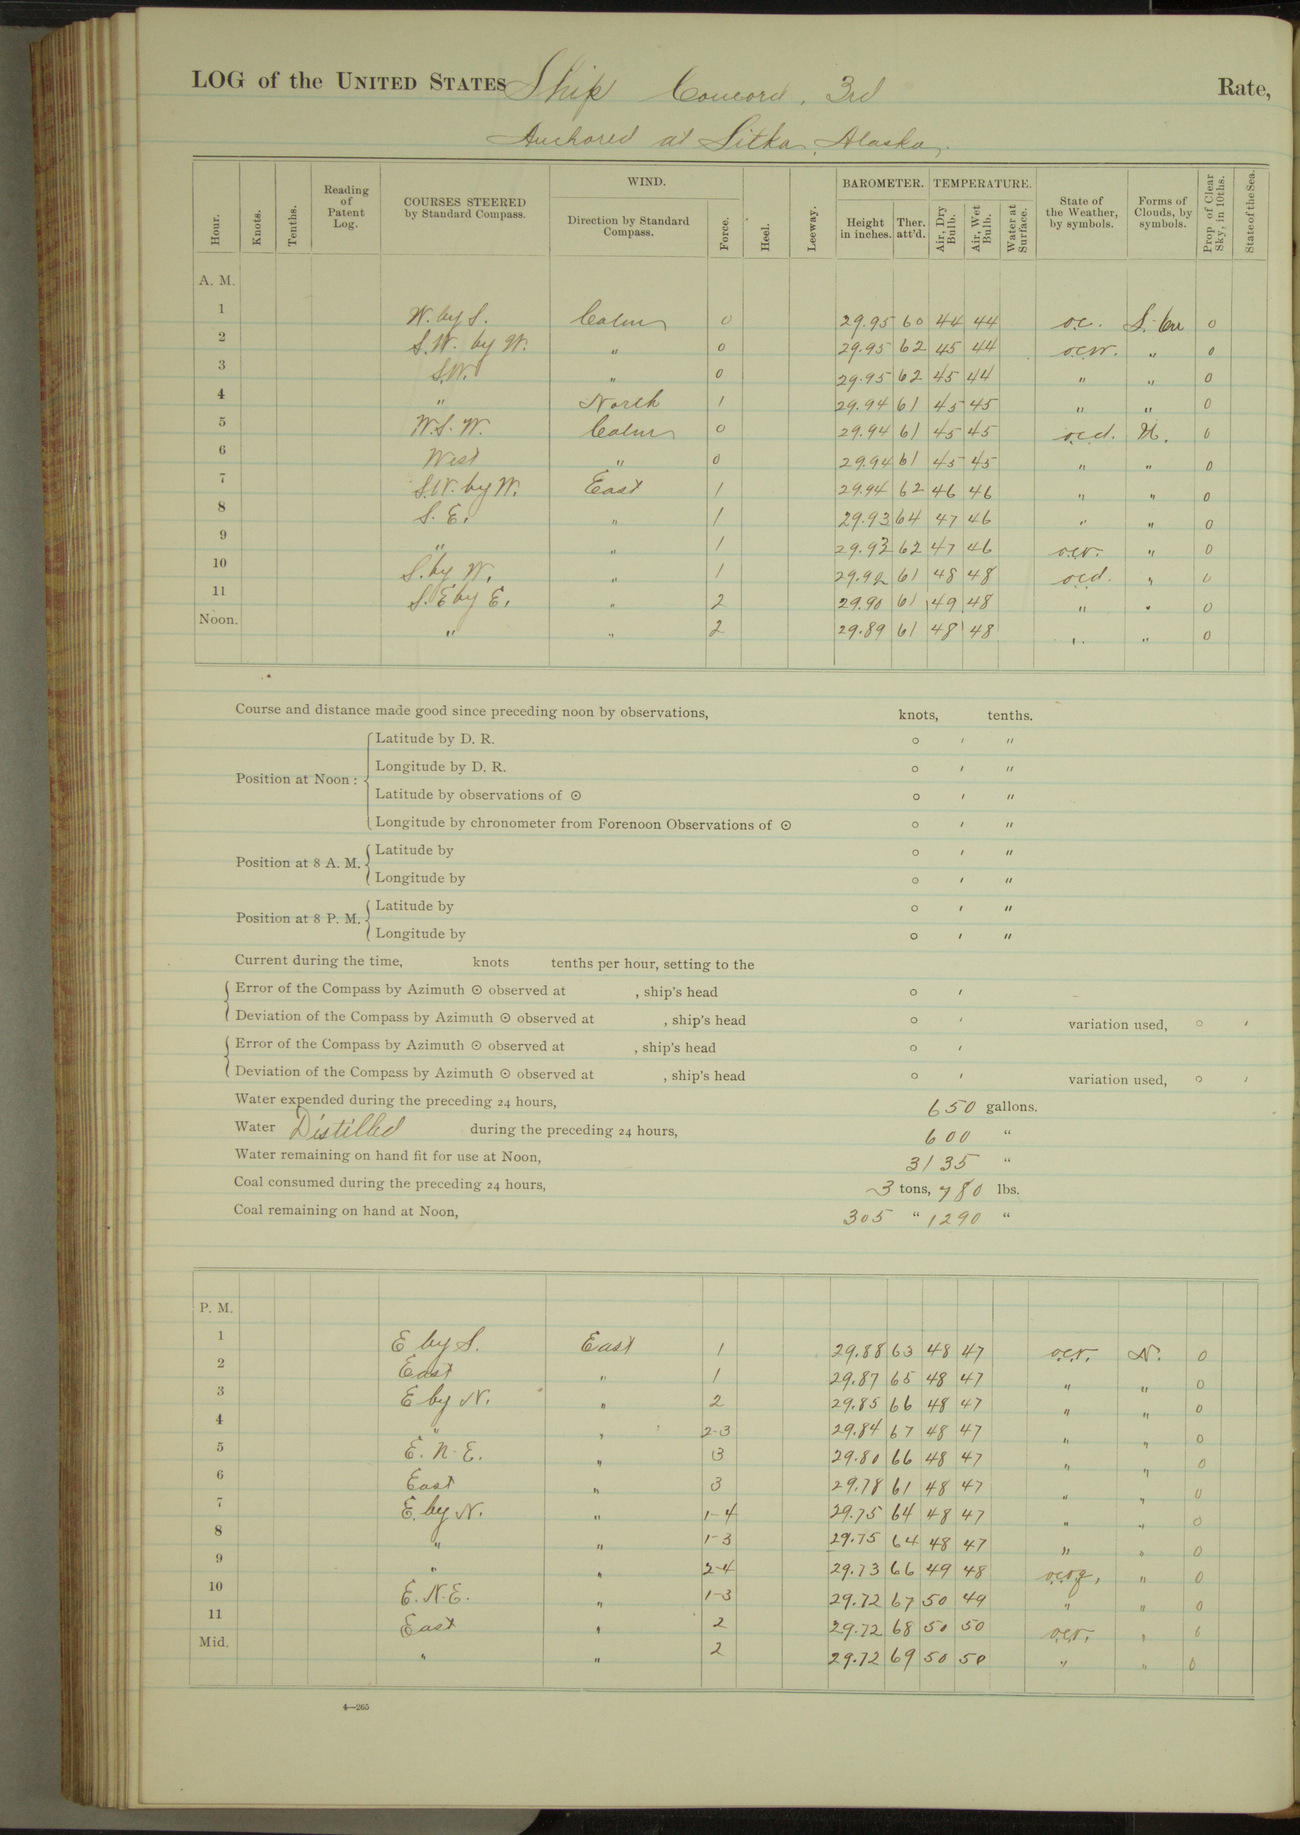 LOG of the UNITED STATES Ship Concord, 3rd Rate,
Anchored at Sitka, Alaska.
Hour. Knots. Tenths. Reading of Patent Log. COURSES STEERED by Standard Compass. WIND. Direction by Standard Compass. Force. Heel. Leeway. BAROMETER. Height in inches. Ther. att'd. TEMPERATURE. Air, Dry Bulb. Air, Wet Bulb. Water at Surface. State of the Weather, by symbols. Forms of Clouds, by symbols. Prop. of Clear Sky, in 10ths. State of the Sea.
A. M.
1 W. by S. Calm 0 29.95 60 44 44 o.c. S.-Cu 0
2 S.W. by W. " 0 29.95 62 45 44 o.c.r. " 0
3 S.W. " 0 29.95 62 45 44 " " 0
4 " North 1 29.94 61 45 45 " " 0
5 W.S.W. Calm 0 29.94 61 45 45 o.c.d. N. 0
6 West " 0 29.94 61 45 45 " " 0
7 S.W. by W. East 1 29.94 62 46 46 " " 0
8 S.E. " 1 29.93 64 47 46 " " 0
9 " " 1 29.93 62 47 46 o.c.r. " 0
10 S. by W. " 1 29.92 61 48 48 o.c.d. " 0
11 S.E by E. " 2 29.90 61 49 48 " " 0
Noon. " " 2 29.89 61 48 48 " " 0
Course and distance made good since preceding noon by observations, knots, tenths.
Position at Noon: Latitude by D. R. ° ′ ″
Longitude by D. R. ° ′ ″
Latitude by observations of ☉ ° ′ ″
Longitude by chronometer from Forenoon Observations of ☉ ° ′ ″
Position at 8 A. M. Latitude by ° ′ ″
Longitude by ° ′ ″
Position at 8 P. M. Latitude by ° ′ ″
Longitude by ° ′ ″
Current during the time, knots tenths per hour, setting to the
Error of the Compass by Azimuth ☉ observed at , ship's head ° ′
Deviation of the Compass by Azimuth ☉ observed at , ship's head ° ′ variation used, ° ′
Error of the Compass by Azimuth ☉ observed at , ship's head ° ′
Deviation of the Compass by Azimuth ☉ observed at , ship's head ° ′ variation used, ° ′
Water expended during the preceding 24 hours, 650 gallons.
Water Distilled during the preceding 24 hours, 600 "
Water remaining on hand fit for use at Noon, 3135 "
Coal consumed during the preceding 24 hours, 3 tons, 780 lbs.
Coal remaining on hand at Noon, 305 " 1290 "
P. M.
1 E by S. East 1 29.88 63 48 47 o.c.r. N. 0
2 East " 1 29.87 65 48 47 " " 0
3 E by N. " 2 29.85 66 48 47 " " 0
4 " " 2-3 29.84 67 48 47 " " 0
5 E.N.E. " 3 29.80 66 48 47 " " 0
6 East " 3 29.78 61 48 47 " " 0
7 E. by N. " 1-4 29.75 64 48 47 " " 0
8 " " 1-3 29.75 64 48 47 " " 0
9 " " 2-4 29.73 66 49 48 o.c.r.q. " 0
10 E.N.E. " 1-3 29.72 67 50 49 " " 0
11 East " 2 29.72 68 50 50 o.c.r. " 0
Mid. " " 2 29.72 69 50 50 " " 0
4—265